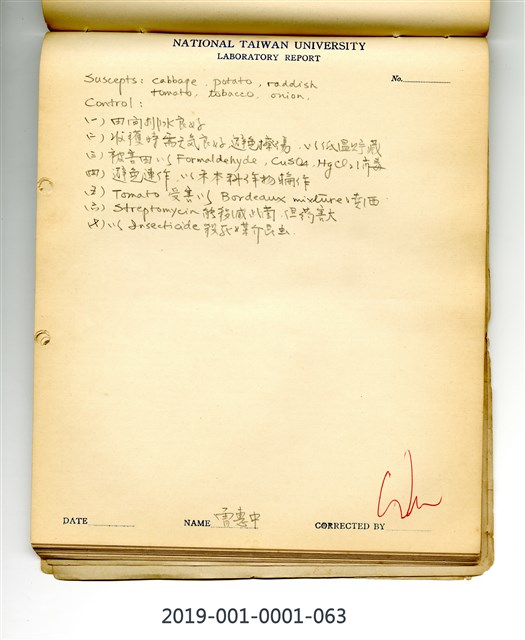 NATIONAL TAIWAN UNIVERSITY
LABORATORY REPORT
No.
Suscepts: cabbage, potato, raddish
tomato, tobacco, onion.
Control:
(一) 田間排水良好
(二) 收穫時需天氣良好避免擦傷，以低溫貯藏
(三) 被害田以 Formaldehyde, CuSO4, HgCl2 消毒
(四) 避免連作，以禾本科作物輪作
(五) Tomato 受害以 Bordeaux mixture
(六) Streptomycin 能殺滅此菌，但药害大
(七) 以 Insecticide 殺死媒介昆虫.
DATE
NAME 曾憲中
CORRECTED BY
2019-001-0001-063